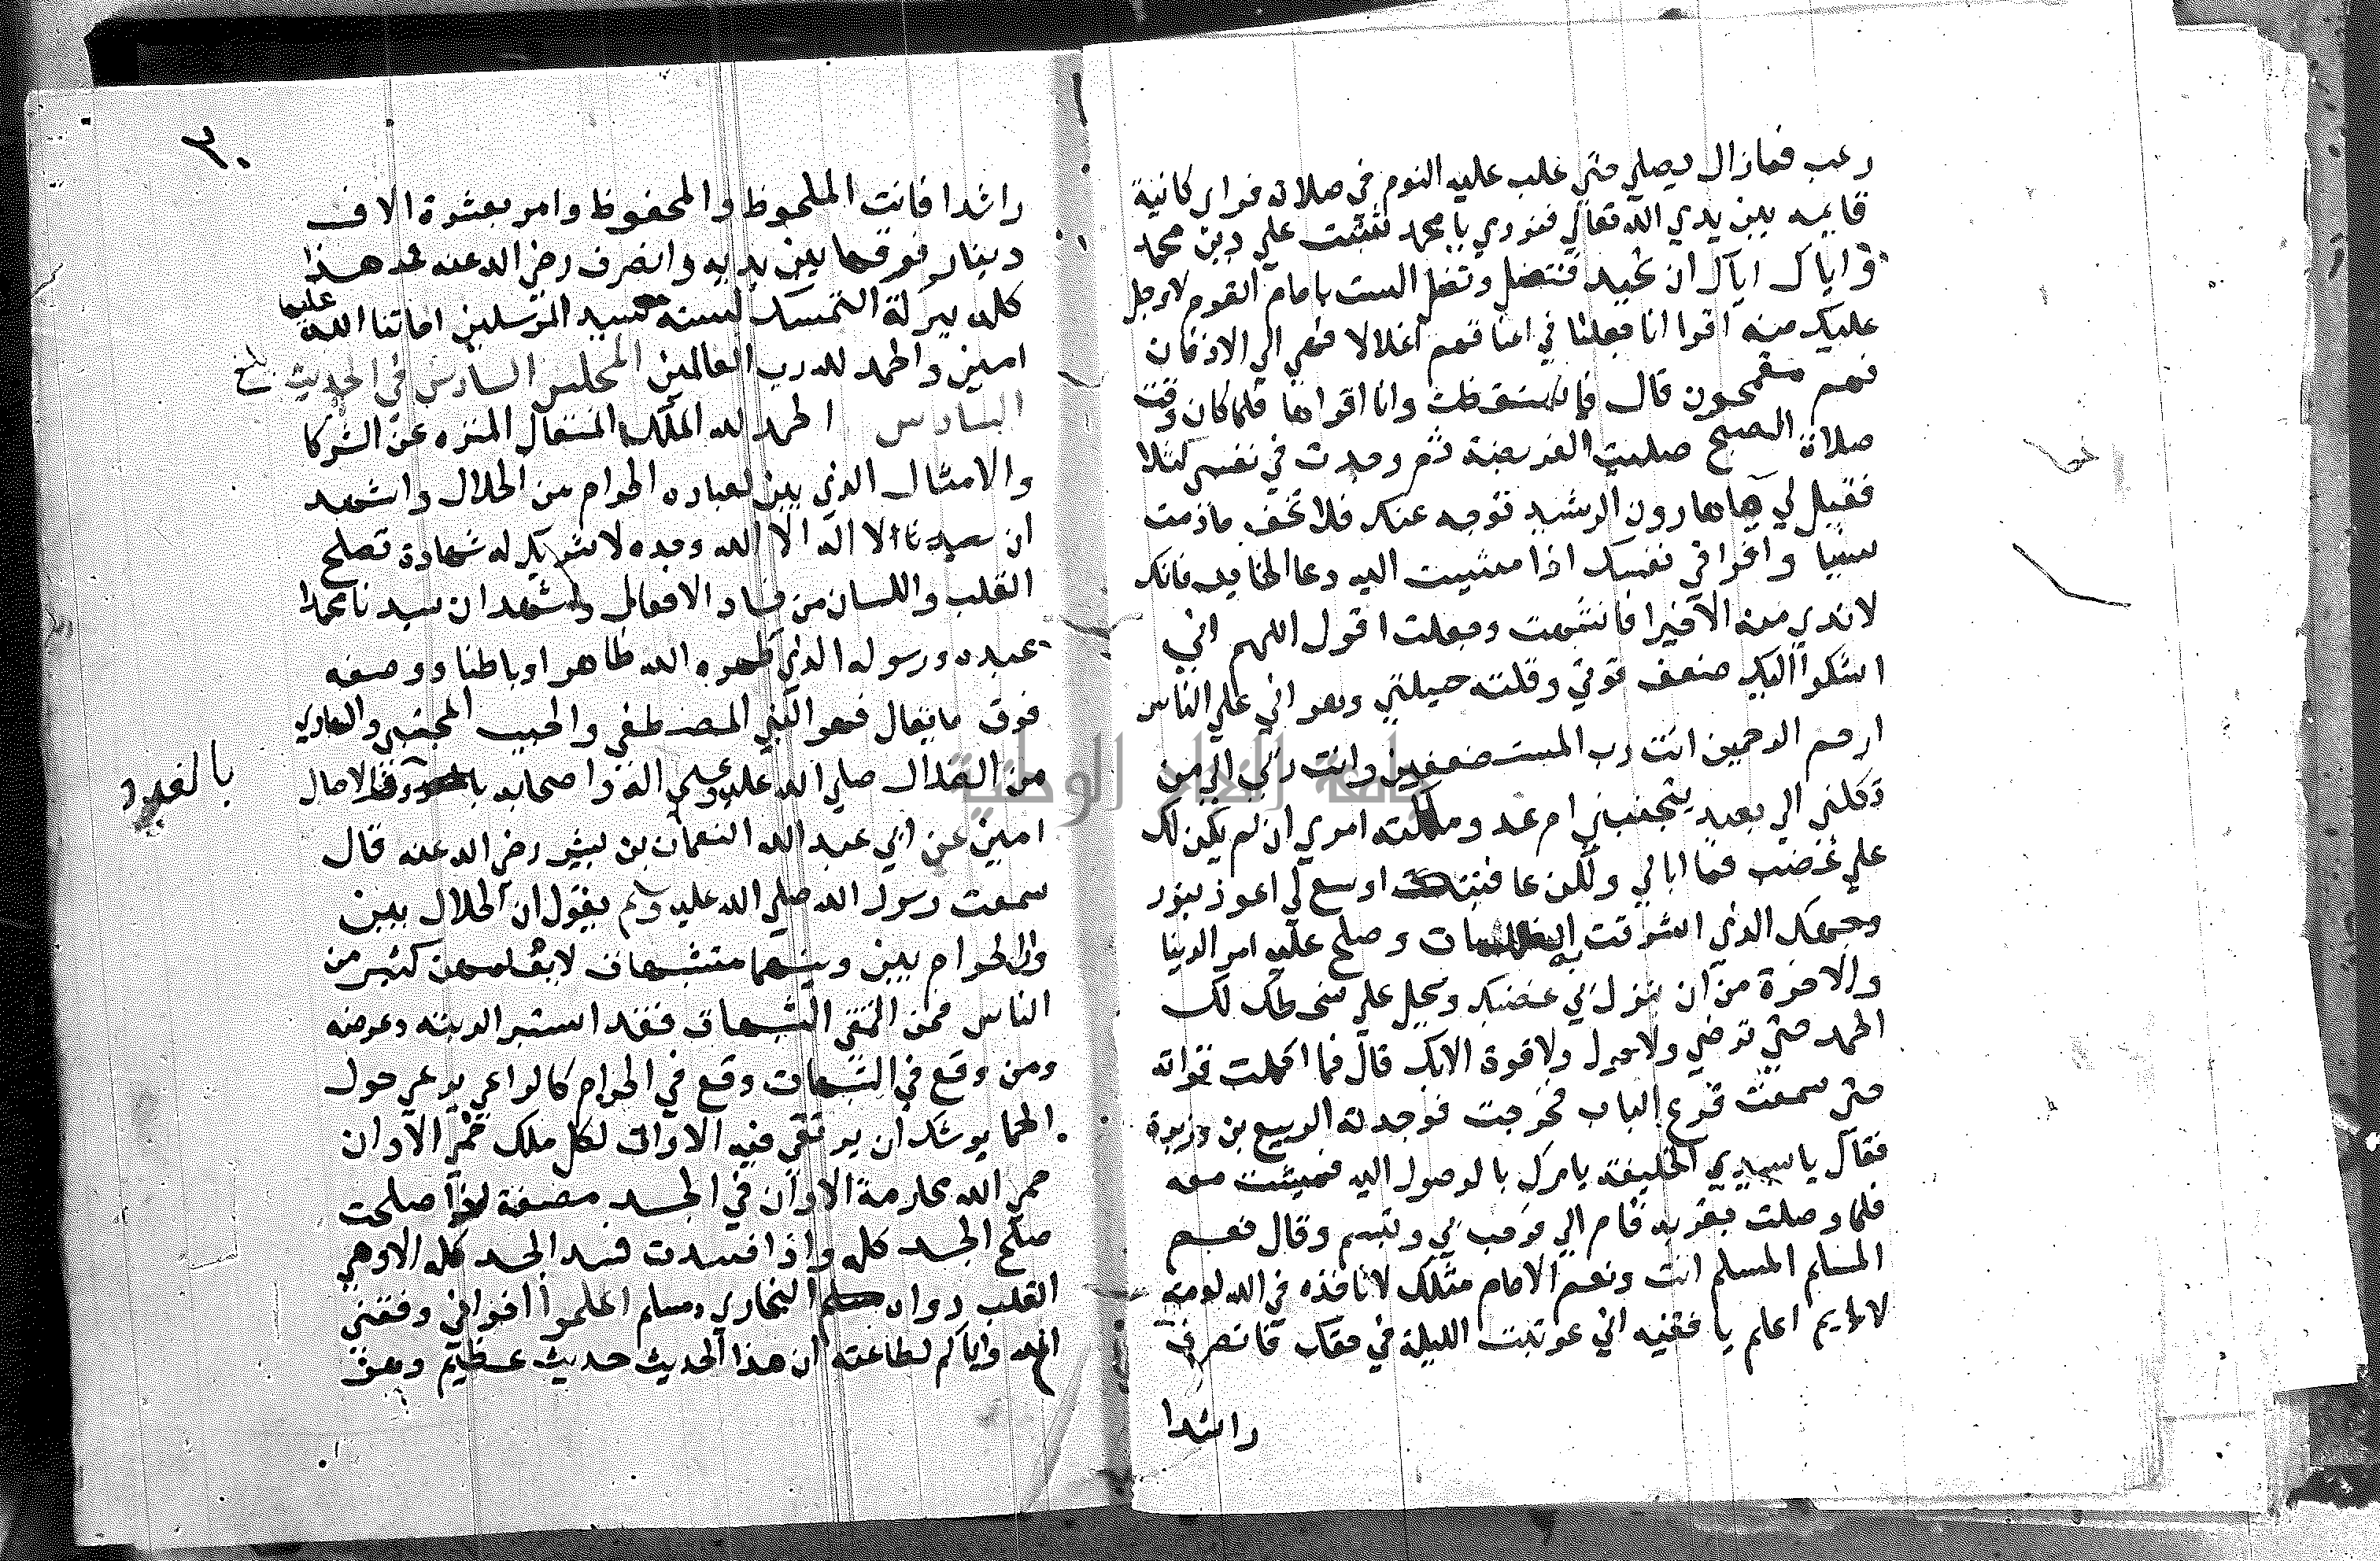 رعب فمازال يصلي حتي غلب عليه النوم في صلاته فراي كانه
قايمه بين يدي الله تعالي فنودي يا محمد تثبت علي دين محمد
واياك اياك ان تحيد فتضل وتضل الست بامام القوم لاوجل
عليك منه اقرا انا جعلنا في اعناقهم اغلالا فهي الي الاذقان
فهم مقمحون قال فاستيقظت وانا اقراها فلما كان وقت
صلاة الصبح صليت الفريضة ثم وجدت في نفسي كسلا
فقيل لي ها هارون الرشيد توجه عنك فلا تخف مادمت
سنيا واقرا في نفسك اذا مشيت اليه دعا الخايف فانك
لا تري منه الا خيرا فانتبهت وجعلت اقول اللهم اني
اشكوا اليك ضعف قوتي وقلت حيلتي وهواني علي الناس
ارحم الرحمين انت رب المستضعفين وانت ربي الي من
تكلني الي بعيد يتجهمني ام عد وملكته امري ان لم يكن لك
علي غضب فما ابالي ولكن عافيتك اوسع لي اعوذ بنور
وجهك الذي اشرقت به الظلمات وصلح عليه امر الدنيا
والاخرة من ان ينزل بي غضبك ويحل علي سخطك لك
الحمد حتي ترضي ولا حول ولا قوة الا بك قال فما اكملت قراته
حتي سمعت قرع الباب فخرجت فوجدته الربيع بن وزيره
فقال يا سيدي الخليفة يامرك بالوصول اليه فمشيت معه
فلما وصلت بقربه قام الي ورحب بي وتبسم وقال نعم
المسلم المسلم انت ونعم الامام مثلك لا تاخذه في الله لومة
لايم اعلم يا فقيه اني عوتبت الليلة في حقك فانصرف
راشدا
٣٠
راشدا فانت الملحوظ والمحفوظ وامر بعشرة الاف
دينار فوقها بين يديه وانصرف رضي الله عنه فهذا
كله ببركة التمسك بسنة سيد المرسلين اماتنا الله عليها
امين والحمد لله رب العالمين المجلس السادس في الحديث
السادس الحمد لله الملك المتعال المنزه عن الشركا
والامثال الذي بين لعباده الحرام من الحلال واشهد
ان سيدنا لا اله الا الله وحده لا شريك له شهادة تصلح
القلب واللسان من فساد الافعال واشهد ان سيدنا محمدا
عبده ورسوله الذي طهره الله ظاهرا وباطنا ووصفه
فوق ما يقال فهو النبي المصطفي والحبيب المجتبي والهادي
من الضلال صلي الله عليه وعلي اله واصحابه بالغدو والاصال
بالغدو
امين عن ابي عبد الله النعمان بن بشير رضي الله عنه قال
سمعت رسول الله صلي الله عليه وسلم يقول ان الحلال بين
وان الحرام بين وبينهما متشبهات لا يعلمهن كثير من
الناس فمن اتقي الشبهات فقد استبر الدينه وعرضه
ومن وقع في الشبهات وقع في الحرام كالراعي يرعي حول
الحما يوشك ان يرتع فيه الا وان لكل ملك حمي الا وان
حمي الله محارمه الا وان في الجسد مضغة اذا صلحت
صلح الجسد كله واذا فسدت فسد الجسد كله الا وهي
القلب رواه البخاري ومسلم اعلموا اخواني وفقني
الله واياكم لطاعته ان هذا الحديث حديث عظيم وهو